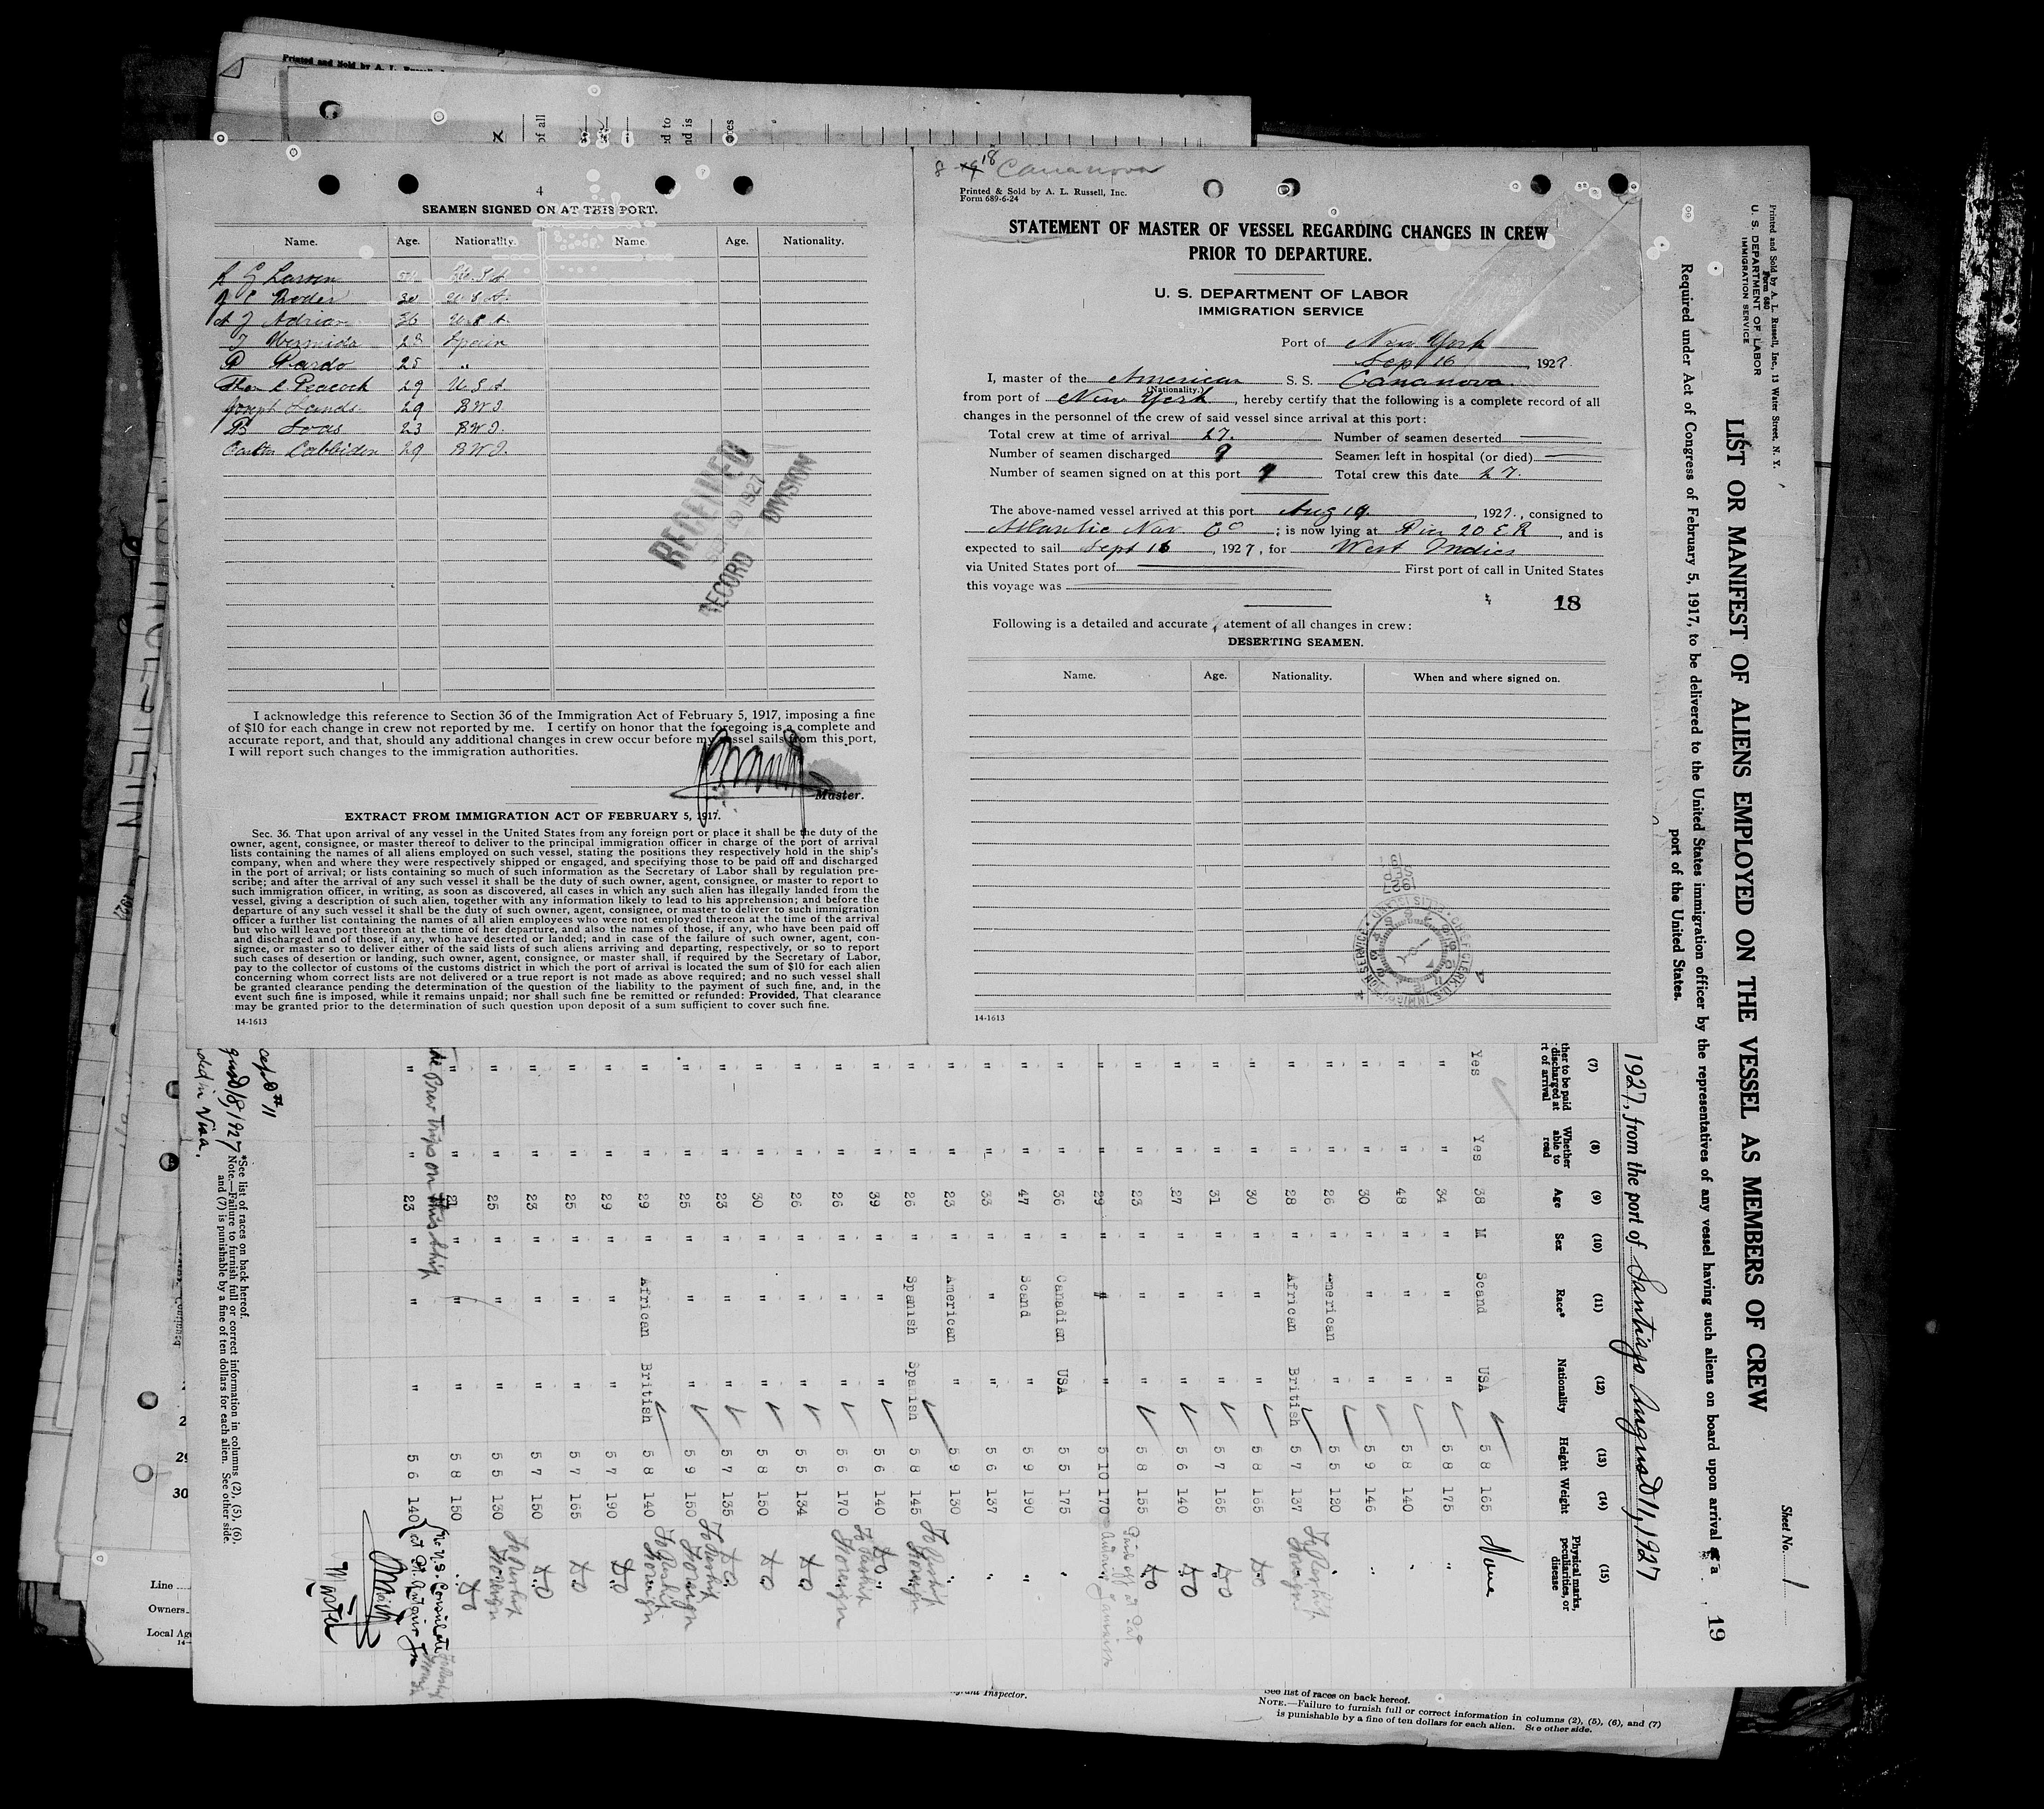 Printed and Sold by A. L. Russell
4
SEAMEN SIGNED ON AT THIS PORT.
Name. Age. Nationality. Name. Age. Nationality.
Larsen U.S.A.
30 U.S.A.
A J Adrian 36 U.S.A.
J Vermida 28 Spain
Pardo 25 "
Peacock 29 U.S.A.
Joseph Lands 29 B.W.I.
B 23 B.W.I.
29 B.W.I.
RECEIVED
1927
RECORD DIVISION
I acknowledge this reference to Section 36 of the Immigration Act of February 5, 1917, imposing a fine
of $10 for each change in crew not reported by me. I certify on honor that the foregoing is a complete and
accurate report, and that, should any additional changes in crew occur before my vessel sails from this port,
I will report such changes to the immigration authorities.
Master.
EXTRACT FROM IMMIGRATION ACT OF FEBRUARY 5, 1917.
Sec. 36. That upon arrival of any vessel in the United States from any foreign port or place it shall be the duty of the
owner, agent, consignee, or master thereof to deliver to the principal immigration officer in charge of the port of arrival
lists containing the names of all aliens employed on such vessel, stating the positions they respectively hold in the ship's
company, when and where they were respectively shipped or engaged, and specifying those to be paid off and discharged
in the port of arrival; or lists containing so much of such information as the Secretary of Labor shall by regulation pre-
scribe; and after the arrival of any such vessel it shall be the duty of such owner, agent, consignee, or master to report to
such immigration officer, in writing, as soon as discovered, all cases in which any such alien has illegally landed from the
vessel, giving a description of such alien, together with any information likely to lead to his apprehension; and before the
departure of any such vessel it shall be the duty of such owner, agent, consignee, or master to deliver to such immigration
officer a further list containing the names of all alien employees who were not employed thereon at the time of the arrival
but who will leave port thereon at the time of her departure, and also the names of those, if any, who have been paid off
and discharged and of those, if any, who have deserted or landed; and in case of the failure of such owner, agent, con-
signee, or master so to deliver either of the said lists of such aliens arriving and departing, respectively, or so to report
such cases of desertion or landing, such owner, agent, consignee, or master shall, if required by the Secretary of Labor,
pay to the collector of customs of the customs district in which the port of arrival is located the sum of $10 for each alien
concerning whom correct lists are not delivered or a true report is not made as above required; and no such vessel shall
be granted clearance pending the determination of the question of the liability to the payment of such fine, and, in the
event such fine is imposed, while it remains unpaid; nor shall such fine be remitted or refunded: Provided, That clearance
may be granted prior to the determination of such question upon deposit of a sum sufficient to cover such fine.
14-1613
8 18 Cananova
Printed & Sold by A. L. Russell, Inc.
Form 689-6-24
STATEMENT OF MASTER OF VESSEL REGARDING CHANGES IN CREW
PRIOR TO DEPARTURE.
U. S. DEPARTMENT OF LABOR
IMMIGRATION SERVICE
Port of New York
Sept 16, 1927.
I, master of the American S. S. Cananova
(Nationality.)
from port of New York, hereby certify that the following is a complete record of all
changes in the personnel of the crew of said vessel since arrival at this port:
Total crew at time of arrival 27. Number of seamen deserted
Number of seamen discharged 9 Seamen left in hospital (or died)
Number of seamen signed on at this port 9 Total crew this date 27.
The above-named vessel arrived at this port Aug 19, 1927., consigned to
Atlantic Nav Co; is now lying at Pier 20 E R, and is
expected to sail Sept 16, 1927, for West Indies
via United States port of First port of call in United States
this voyage was
18
Following is a detailed and accurate statement of all changes in crew:
DESERTING SEAMEN.
Name. Age. Nationality. When and where signed on.
14-1613
Printed and Sold by A. L. Russell, Inc., 13 Water Street, N. Y.
Form 680
U. S. DEPARTMENT OF LABOR
IMMIGRATION SERVICE
Sheet No. 1
LIST OR MANIFEST OF ALIENS EMPLOYED ON THE VESSEL AS MEMBERS OF CREW
Required under Act of Congress of February 5, 1917, to be delivered to the United States immigration officer by the representatives of any vessel having such aliens on board upon arrival at a
port of the United States.
19
1927, from the port of Santiago August 11, 1927
(7) (8) (9) (10) (11) (12) (13) (14) (15)
ther to be paid discharged at rt of arrival Whether able to read Age Sex Race* Nationality Height Weight Physical marks, peculiarities, or disease
Yes Yes 38 M Scand USA 5 8 165 None
" " 34 " " " 5 8 175 "
" " 48 " " " 5 8 140 "
" " 30 " " " 5 9 146 "
" " 26 " American " 5 5 120 "
" " 28 " African British 5 7 137 To Reship Foreign
" " 30 " " " 5 8 165 Do
" " 31 " " " 5 7 165 Do
" " 27 " " " 5 6 140 Do
" " 23 " " " 5 8 155 Do
" " 29 " " " 5 10 170 Paid off at Antonio Jamaica
" " 36 " Canadian USA 5 5 175 "
" " 47 " Scand " 5 9 190 "
" " 33 " " " 5 6 137 "
" " 23 " American " 5 9 130 "
" " 26 " Spanish Spanish 5 8 145 To Reship Foreign
" " 39 " " " 5 6 140 Do
" " 26 " " " 5 6 170 To Reship Foreign
" " 26 " " " 5 5 134 Do
" " 30 " " " 5 8 150 Do
" " 23 " " " 5 7 135 Do
" " 25 " " " 5 9 150 To Reship Foreign
" " 29 " African British 5 8 140 To Reship Foreign
" " 29 " " " 5 7 190 Do
" " 25 " " " 5 7 165 Do
" " 23 " " " 5 7 150 Do
" " 25 " " " 5 5 130 To Reship Foreign
" " " " " 5 8 150 Do
" " 23 " " " 5 6 140
Trips on this ship
No U.S. Consulate
at Pt Antonio Jca
Master
1927
Visa.
*See list of races on back hereof.
Note.—Failure to furnish full or correct information in columns (2), (5), (6),
and (7) is punishable by a fine of ten dollars for each alien. See other side.
29
30
Line
Owners
Local Ag
See list of races on back hereof.
NOTE.—Failure to furnish full or correct information in columns (2), (5), (6), and (7)
is punishable by a fine of ten dollars for each alien. See other side.
Inspector.